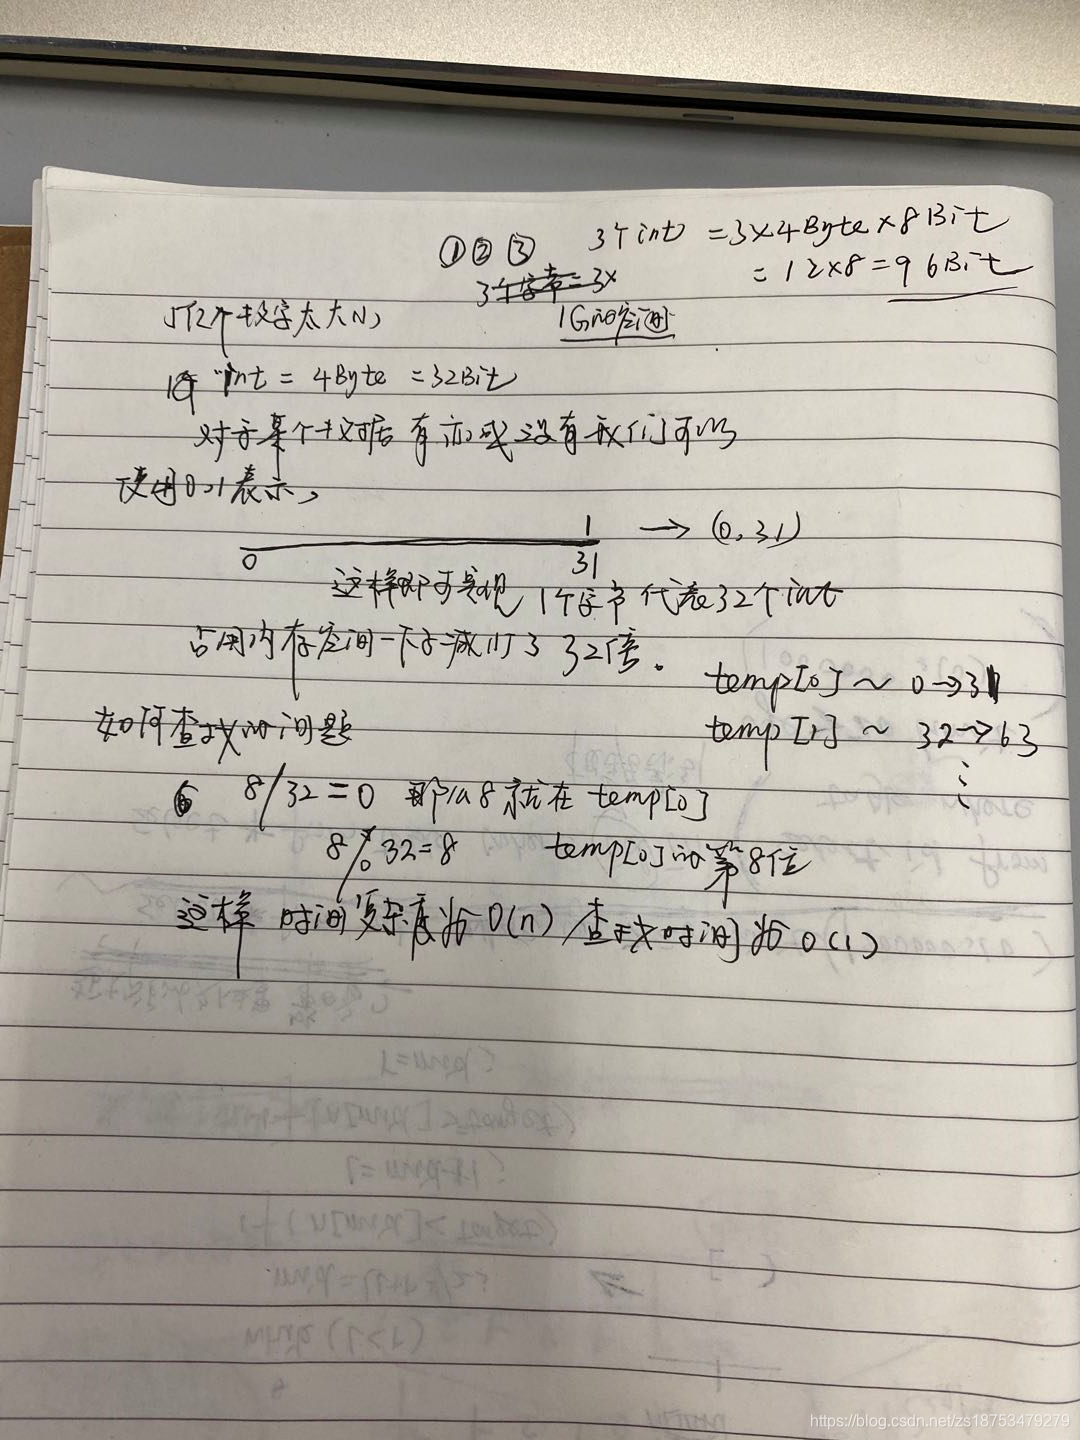 ①②③ 3个int = 3×4Byte×8Bit
= 12×8 = 96Bit
3个字节=3×
1G的空间
个数字太大
int = 4Byte = 32Bit
对于某个数据有或没有我们可以
使用0,1表示,
1 → (0,31)
0 31
这样即可实现1个字节代表32个int
占用内存空间一下子减少了32倍。
temp[0] ~ 0→31
如何查找的问题
temp[1] ~ 32→63
8/32=0 那么8就在temp[0]
8%32=8 temp[0]的第8位
这样时间复杂度为O(n) 查找时间为O(1)
https://blog.csdn.net/zs18753479279